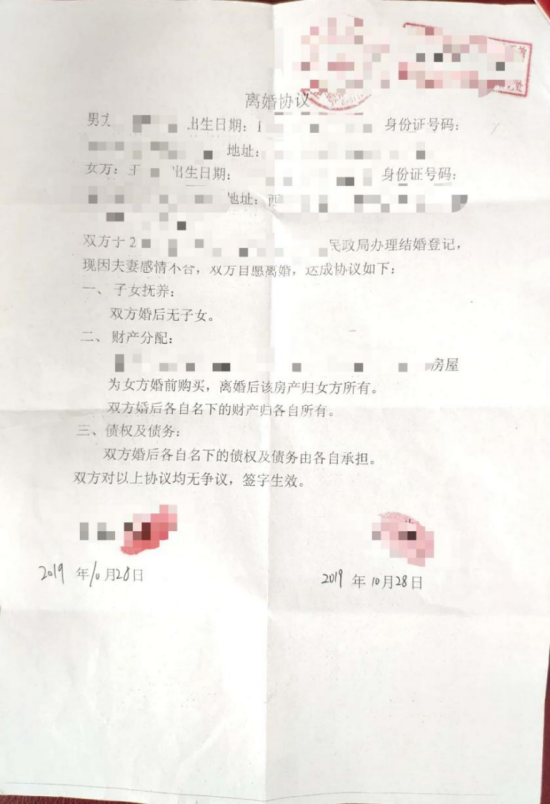 离婚协议
男方 出生日期： 身份证号码：
地址：
女方： 出生日期： 身份证号码：
地址：
双方于2 民政局办理结婚登记，
现因夫妻感情不合，双方自愿离婚，达成协议如下：
一、子女抚养：
双方婚后无子女。
二、财产分配：
房屋
为女方婚前购买，离婚后该房产归女方所有。
双方婚后各自名下的财产归各自所有。
三、债权及债务：
双方婚后各自名下的债权及债务由各自承担。
双方对以上协议均无争议，签字生效。
2019 年 10 月 28 日 2019 年 10 月 28 日